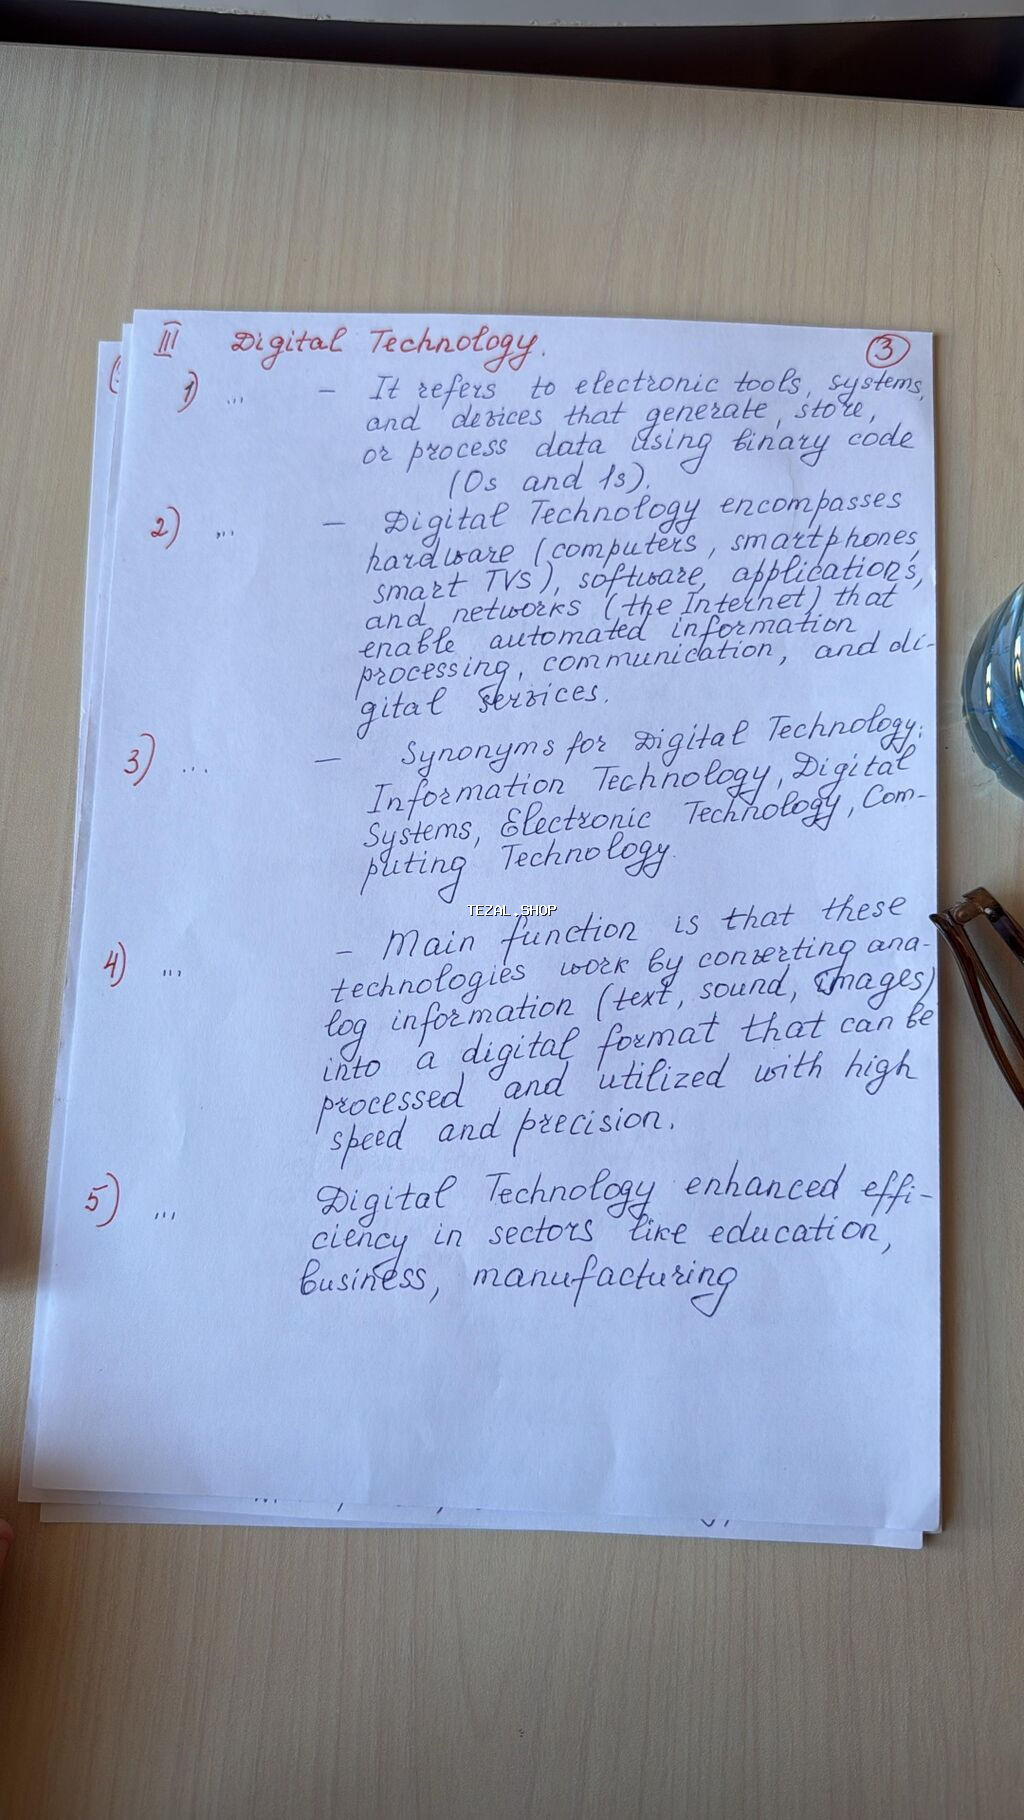 III Digital Technology. 3
1) ... – It refers to electronic tools, systems,
and devices that generate, store,
or process data using binary code
(0s and 1s).
2) ... – Digital Technology encompasses
hardware (computers, smartphones,
smart TVs), software, applications,
and networks (the Internet) that
enable automated information
processing, communication, and di-
gital services.
3) ... – Synonyms for Digital Technology:
Information Technology, Digital
Systems, Electronic Technology, Com-
puting Technology.
TEZAL.SHOP
4) ... – Main function is that these
technologies work by converting ana-
log information (text, sound, images)
into a digital format that can be
processed and utilized with high
speed and precision.
5) ... Digital Technology enhanced effi-
ciency in sectors like education,
business, manufacturing